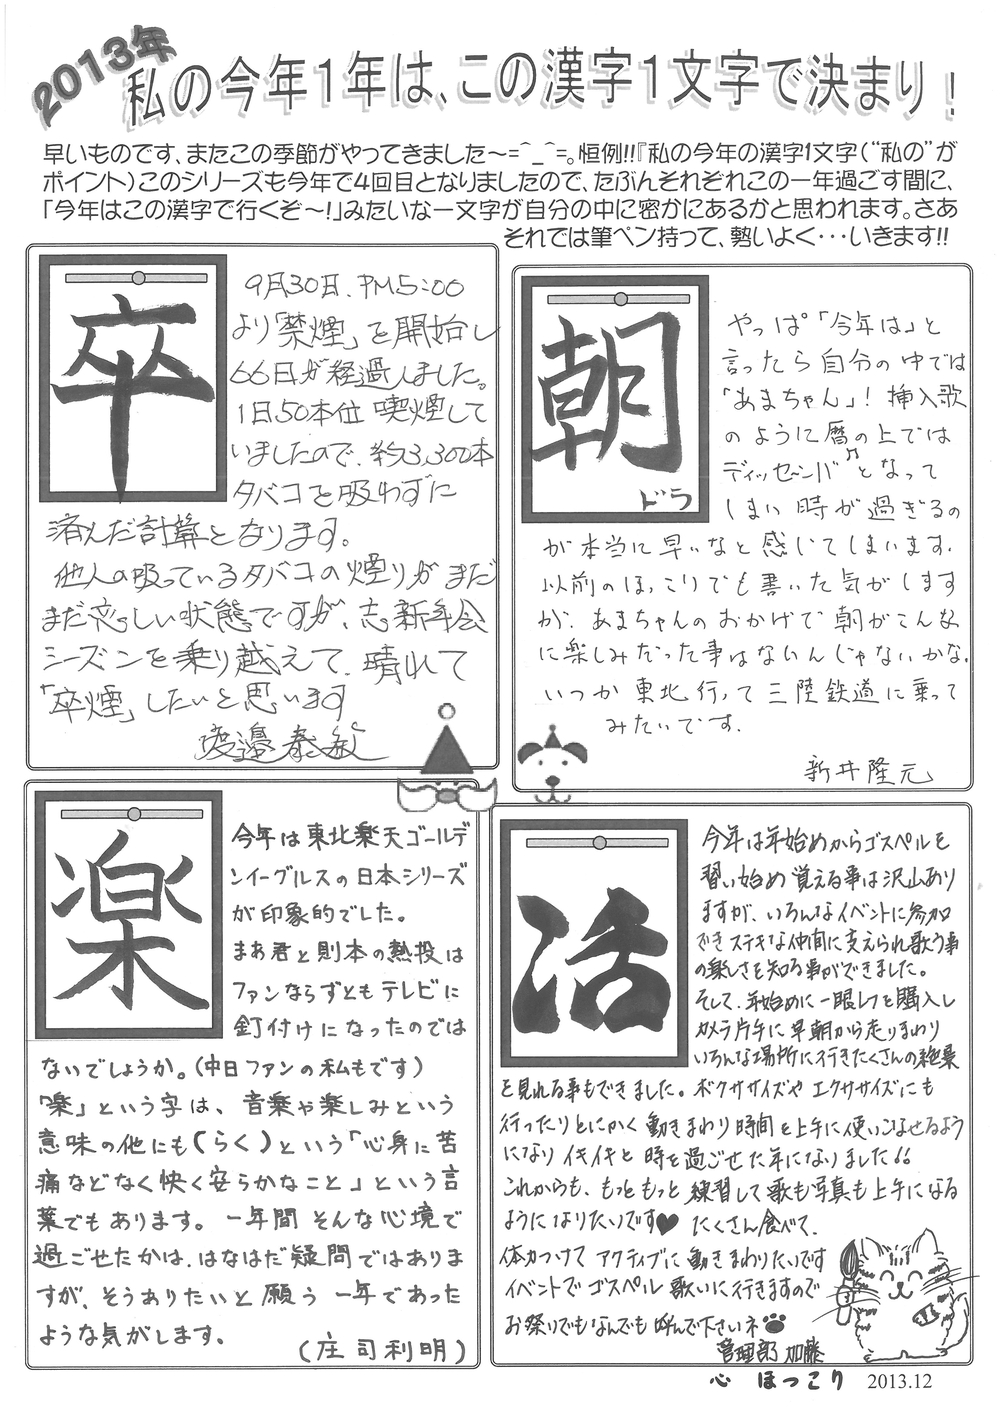 2013年
私の今年1年は、この漢字1文字で決まり！
早いものです、またこの季節がやってきました～=^_^=。恒例!!『私の今年の漢字1文字（“私の”が
ポイント）このシリーズも今年で4回目となりましたので、たぶんそれぞれこの一年過ごす間に、
「今年はこの漢字で行くぞ～!」みたいな一文字が自分の中に密かにあるかと思われます。さあ
それでは筆ペン持って、勢いよく・・・いきます!!
卒
9月30日、PM5:00
より「禁煙」を開始し
66日が経過しました。
1日50本位 喫煙して
いましたので、約3,300本
タバコを吸わずに
済んだ計算となります。
他人の吸っているタバコの煙りがまだ
まだ恋しい状態ですが、忘新年会
シーズンを乗り越えて、晴れて
「卒煙」したいと思います
渡邉泰
朝
ドラ
やっぱ「今年は」と
言ったら自分の中では
「あまちゃん」！挿入歌
のように暦の上では
ディッセ～ンバ♫となって
しまい時が過ぎるの
が本当に早いなと感じてしまいます。
以前のほっこりでも書いた気がします
が、あまちゃんのおかげで朝がこんな
に楽しみだった事はないんじゃないかな。
いつか東北行って三陸鉄道に乗って
みたいです。
新井隆元
楽
今年は東北楽天ゴールデ
ンイーグルスの日本シリーズ
が印象的でした。
まあ君と則本の熱投は
ファンならずともテレビに
釘付けになったのでは
ないでしょうか。(中日ファンの私もです)
「楽」という字は、音楽や楽しみという
意味の他にも(らく)という「心身に苦
痛などなく快く安らかなこと」という言
葉でもあります。一年間そんな心境で
過ごせたかは、はなはだ疑問ではありま
すが、そうありたいと願う一年であった
ような気がします。
(庄司利明)
活
今年は年始めからゴスペルを
習い始め覚える事は沢山あり
ますが、いろんなイベントに参加
でき ステキな仲間に支えられ歌う事
の楽しさを知る事ができました。
そして、年始めに一眼レフを購入し
カメラ片手に早朝から走りまわり
いろんな場所に行きたくさんの絶景
を見れる事もできました。ボクササイズやエクササイズにも
行ったりとにかく動きまわり時間を上手に使いこなせるよう
になりイキイキと時を過ごせた年になりました!!
これからも、もっともっと練習して歌も写真も上手になる
ようになりたいです♥ たくさん食べて、
体力つけてアクティブに動きまわりたいです
イベントでゴスペル歌いに行きますので
お祭りでもなんでも呼んで下さいネ
管理部 加藤
心 ほっこり 2013.12